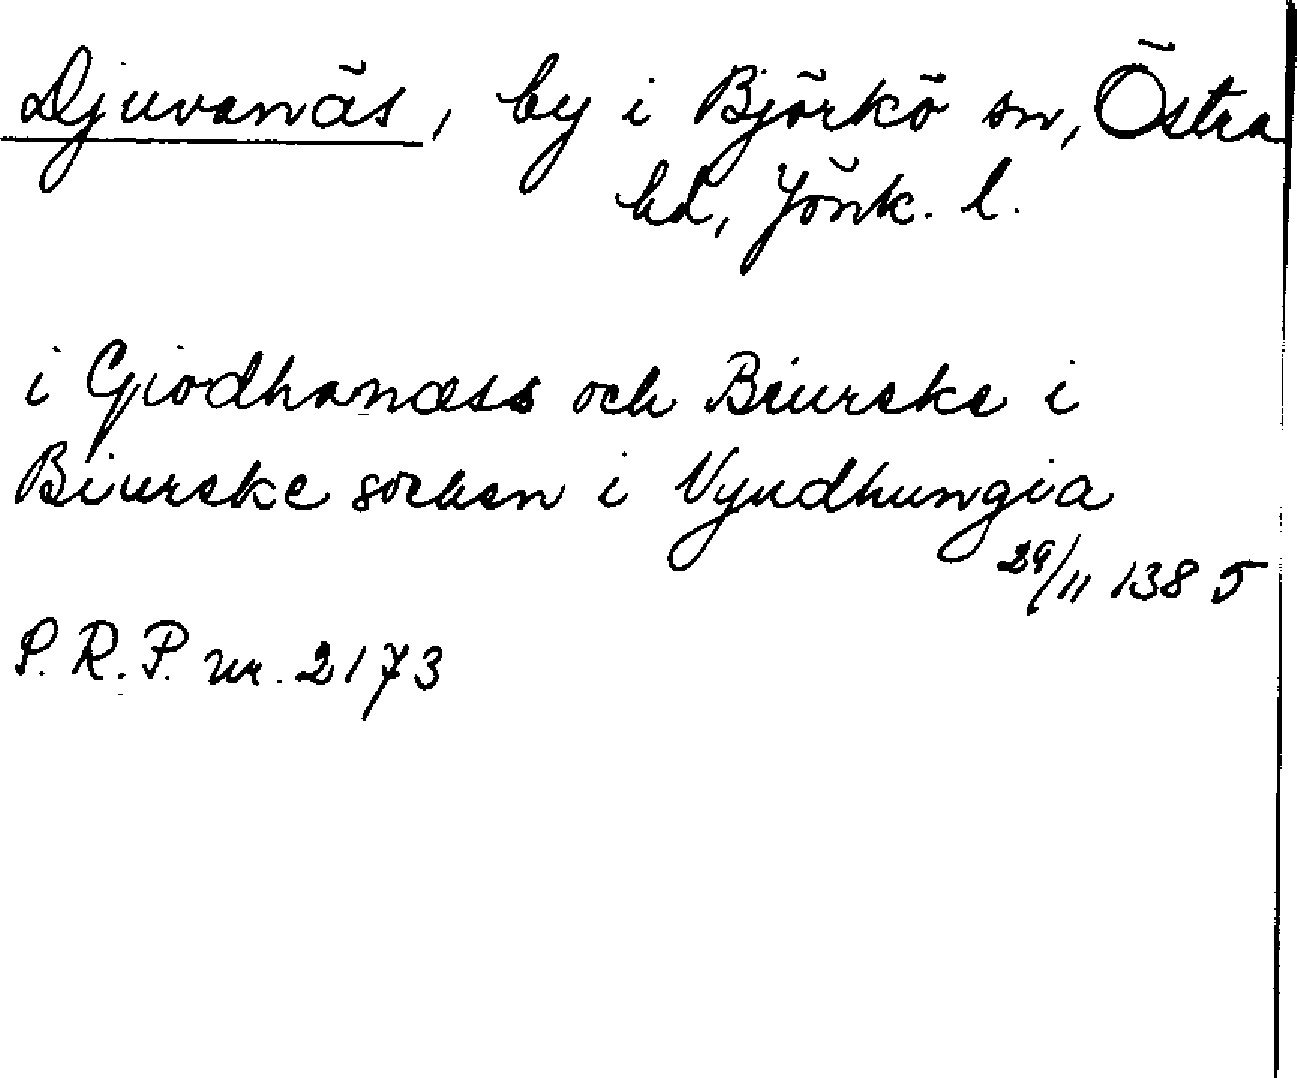 Djuvanäs, by i Björkö sn, Östra
hd, Jönk. l.
i Giodhanæss och Biurske i
Biurske socken i Vyndhungia
29/11 1385
P. R. P. nr. 2173